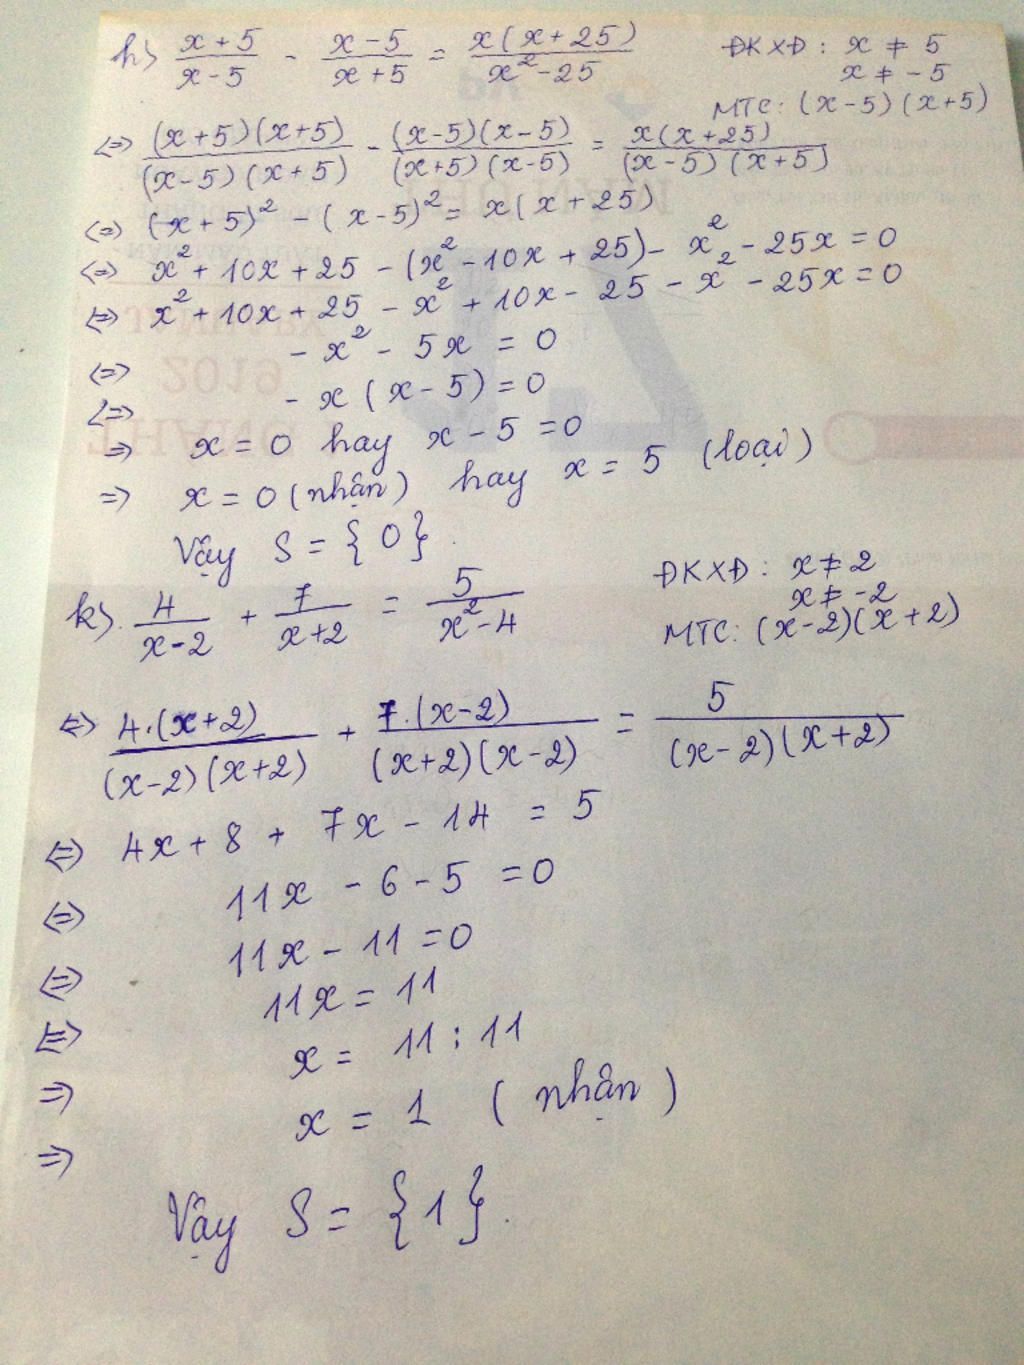 h) (x+5)/(x-5) - (x-5)/(x+5) = x(x+25)/(x²-25)
ĐKXĐ: x ≠ 5
x ≠ -5
MTC: (x-5)(x+5)
<=> (x+5)(x+5)/(x-5)(x+5) - (x-5)(x-5)/(x+5)(x-5) = x(x+25)/(x-5)(x+5)
<=> (x+5)² - (x-5)² = x(x+25)
<=> x² + 10x + 25 - (x² - 10x + 25) - x² - 25x = 0
<=> x² + 10x + 25 - x² + 10x - 25 - x² - 25x = 0
<=> - x² - 5x = 0
<=> - x (x-5) = 0
=> x = 0 hay x - 5 = 0
=> x = 0 (nhận) hay x = 5 (loại)
Vậy S = {0}.
k). 4/(x-2) + 7/(x+2) = 5/(x²-4)
ĐKXĐ: x ≠ 2
x ≠ -2
MTC: (x-2)(x+2)
<=> 4.(x+2)/(x-2)(x+2) + 7.(x-2)/(x+2)(x-2) = 5/(x-2)(x+2)
<=> 4x + 8 + 7x - 14 = 5
<=> 11x - 6 - 5 = 0
<=> 11x - 11 = 0
<=> 11x = 11
=> x = 11 : 11
=> x = 1 (nhận)
Vậy S = {1}.
2019